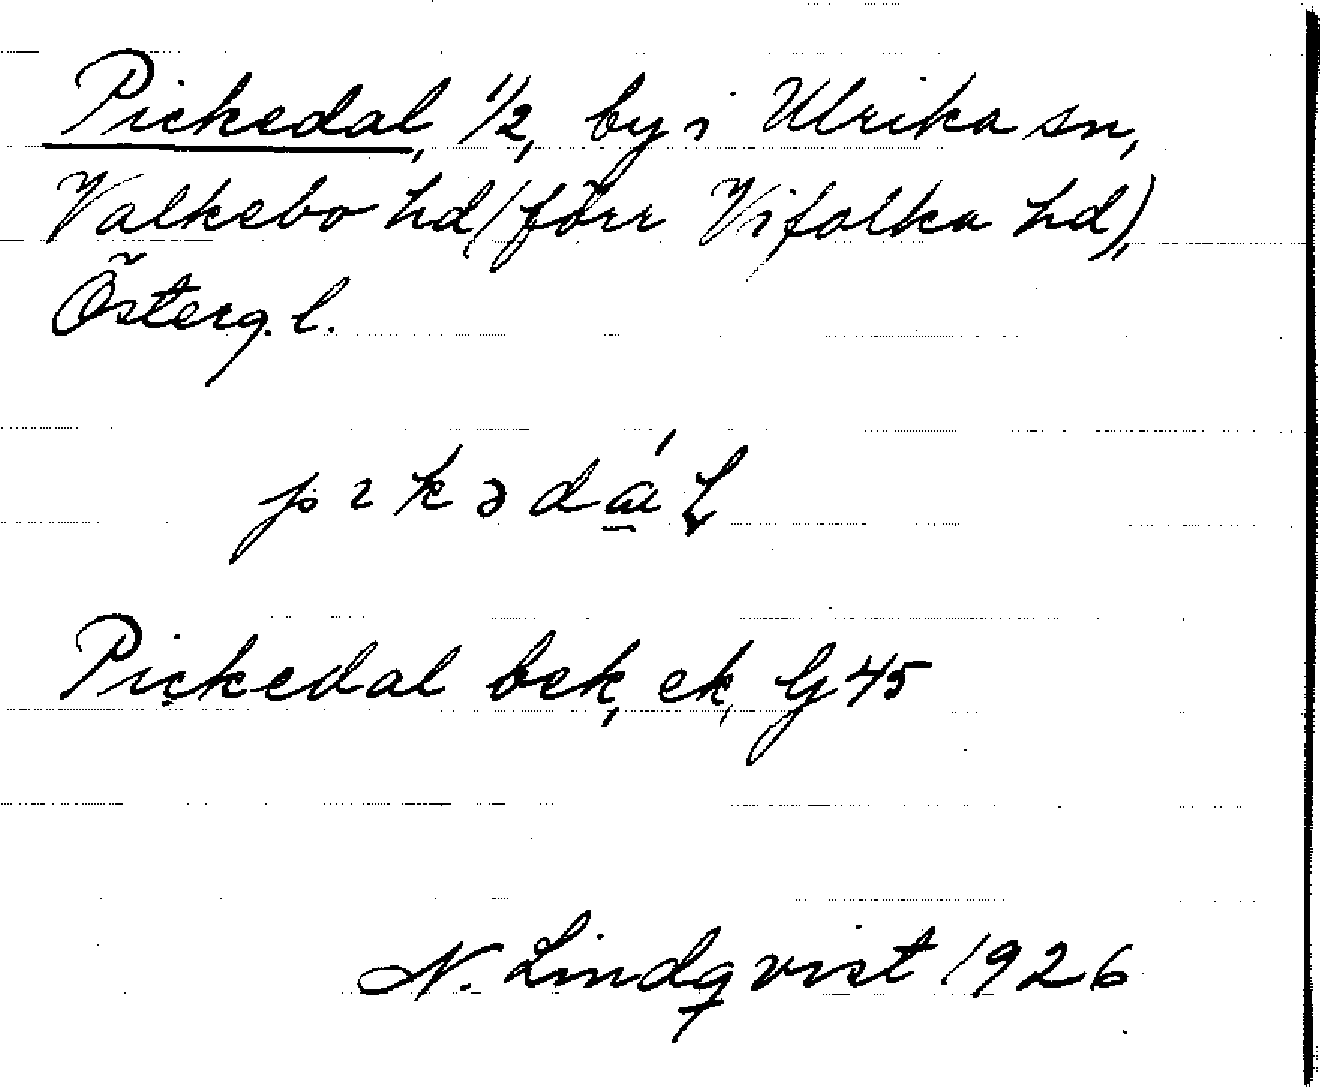 Pickedal, 1/2, by i Ulrika sn,
Valkebo hd (förr Vifolka hd),
Österg. l.
Pickedal bek, ek, G 45
N. Lindqvist 1926